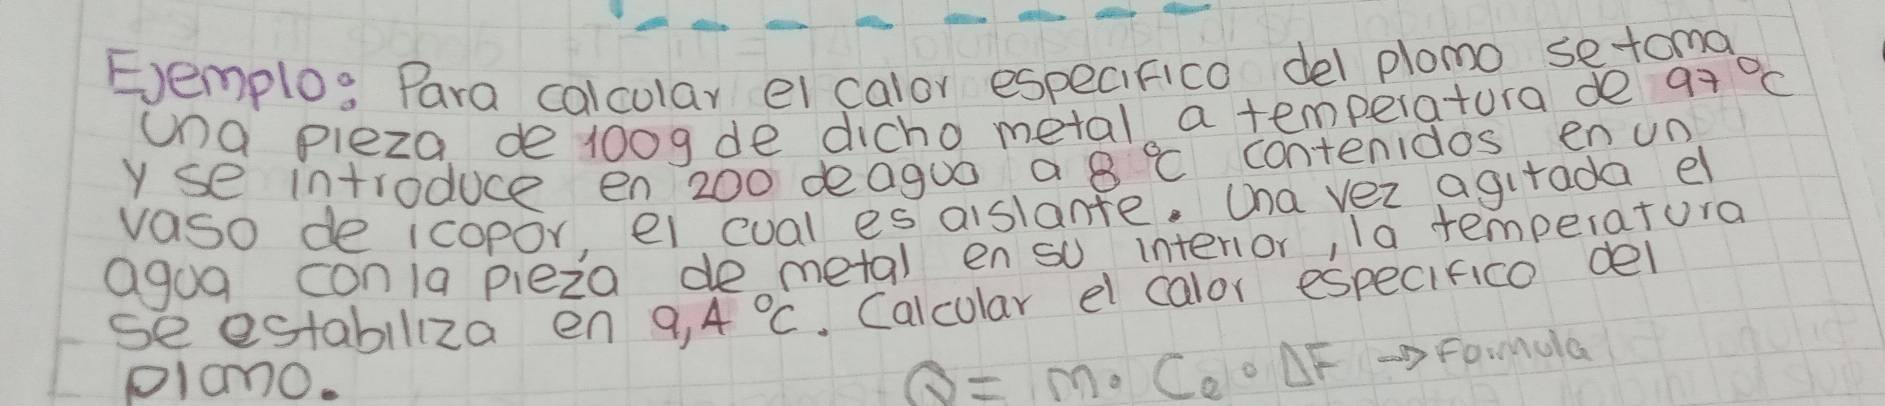 Ejemplo: Para calcular el calor especifico del plomo se toma
una pieza de 100g de dicho metal a temperatura de 97 °C
y se introduce en 200 de agua a 8 °C contenidos en un
vaso de icopor, el cual es aislante. Una vez agitada el
agua con la pieza de metal en su interior, la temperatura
se estabiliza en 9,4 °C. Calcular el calor específico del
plomo.
Q = m. Ce. ΔF → Formula